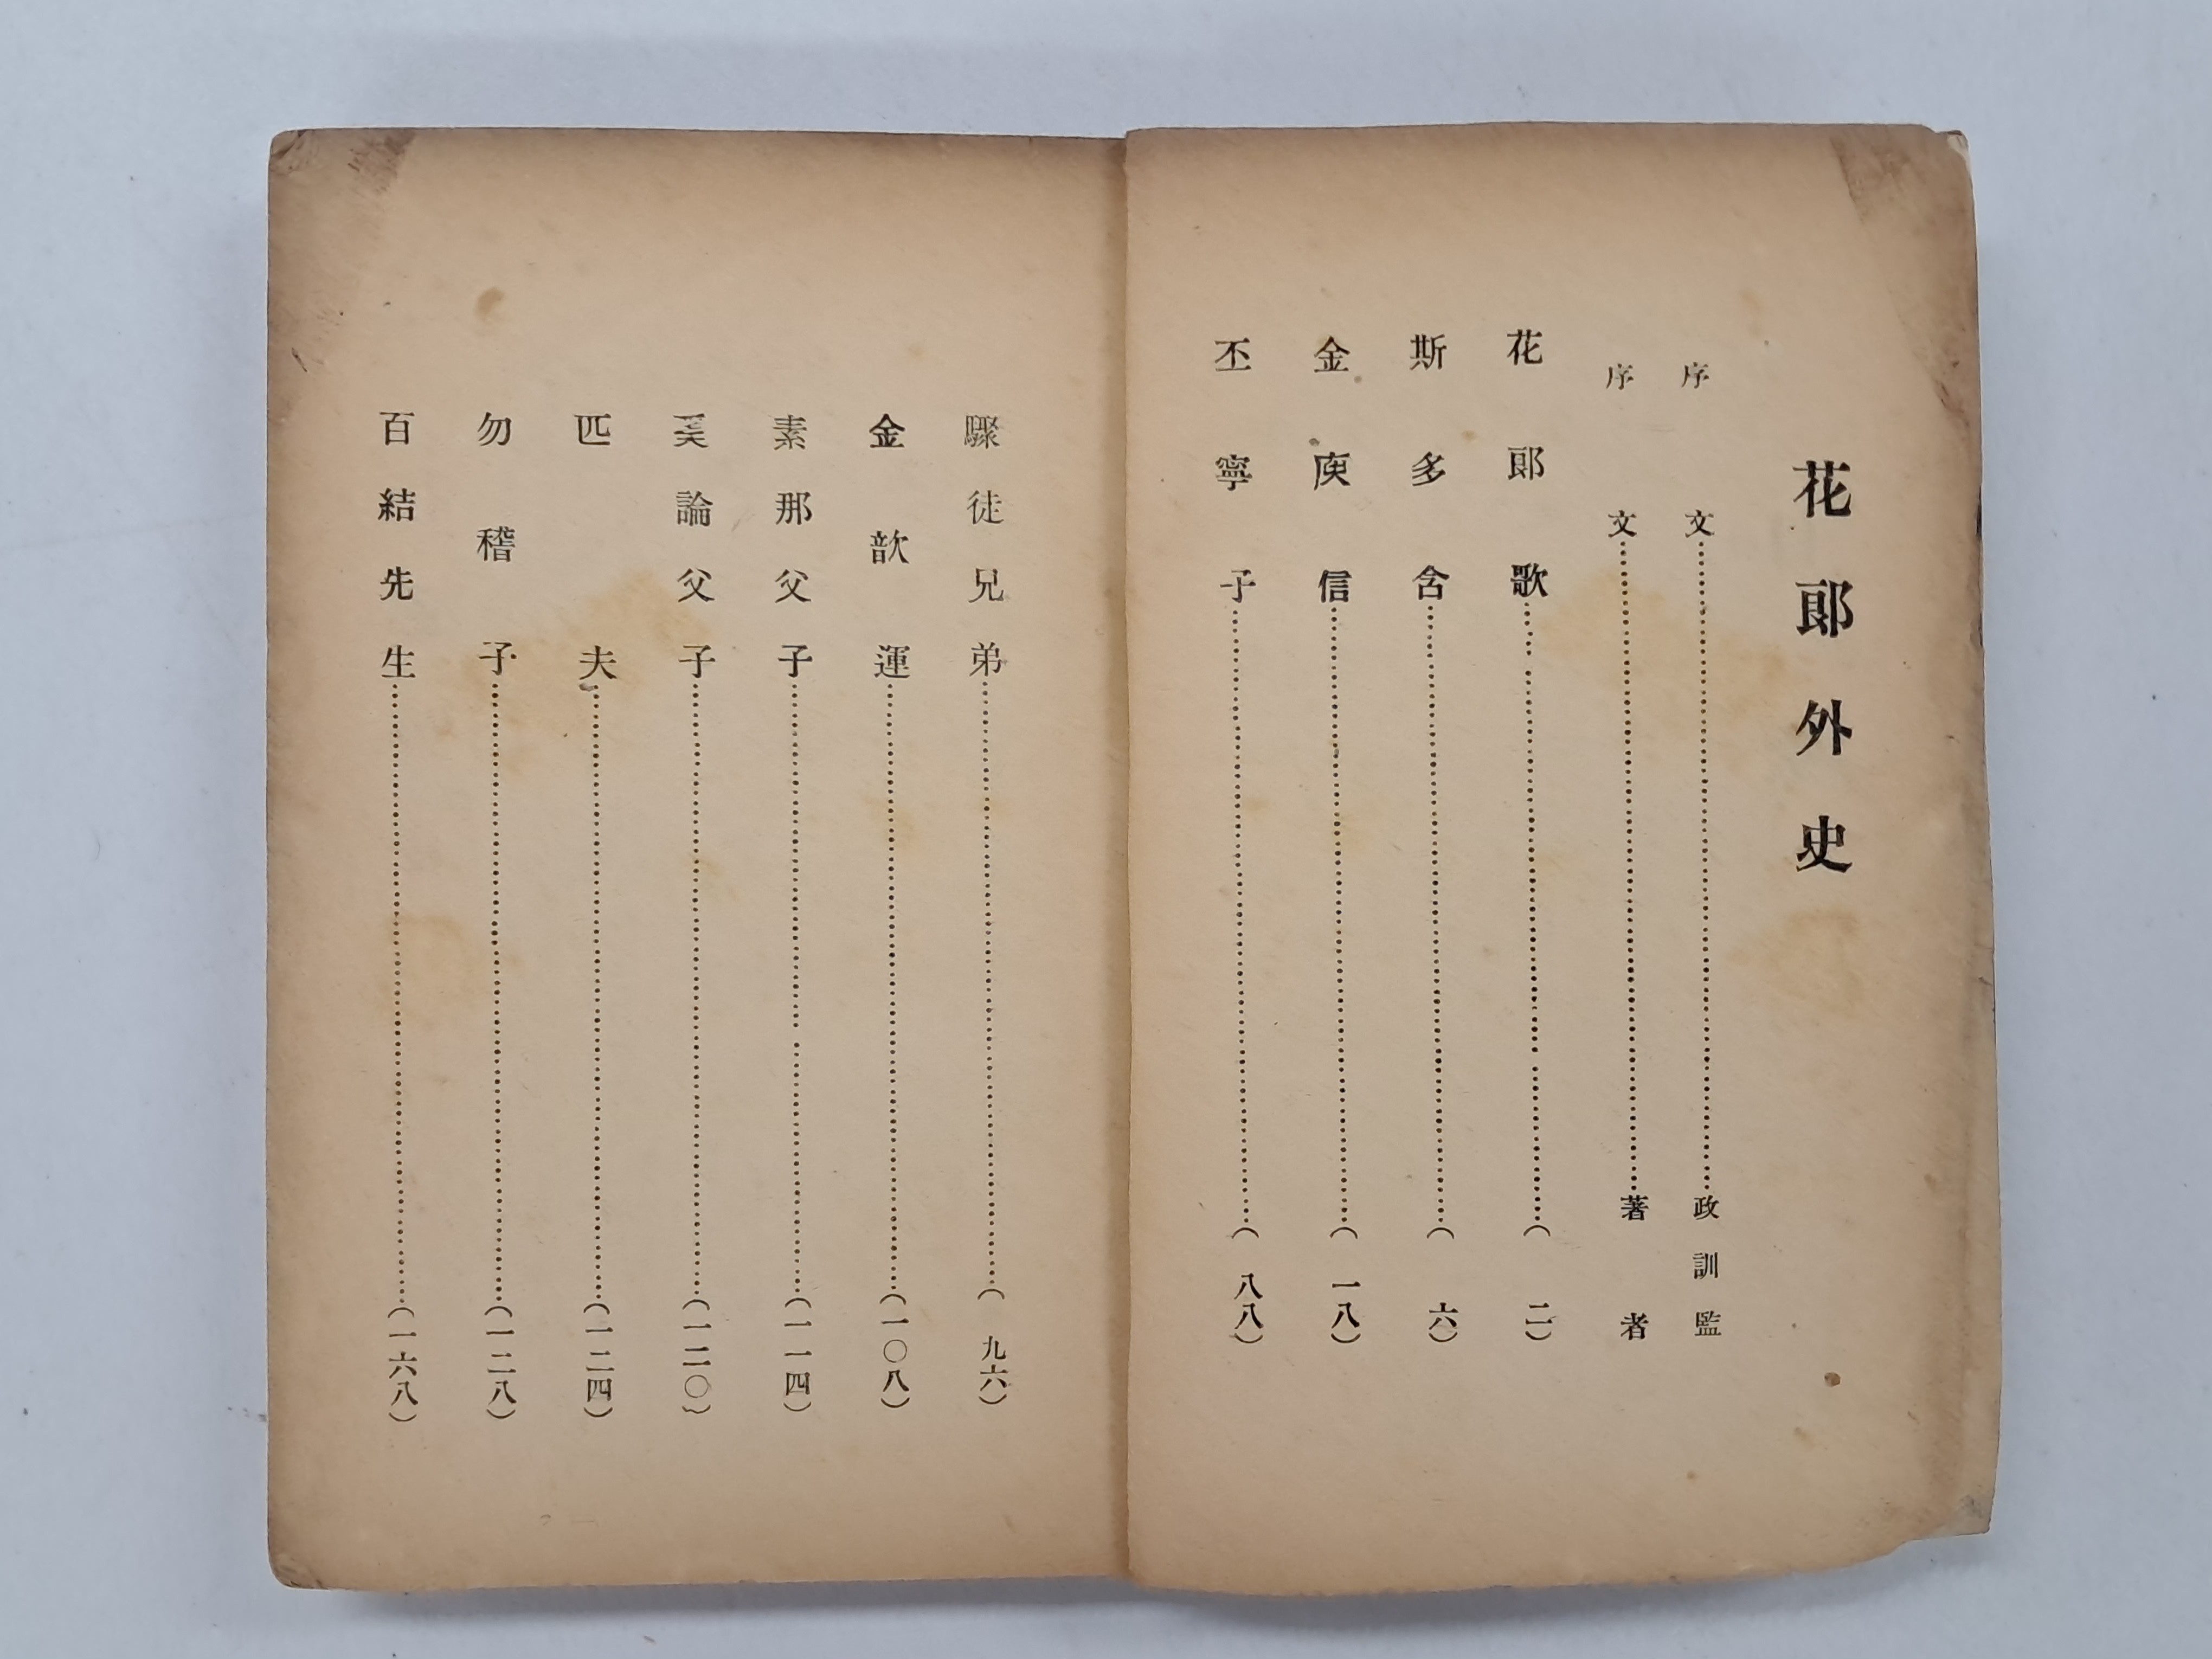 花郞外史
序文……………政訓監
序文……………著者
花郞歌……………(二)
斯多含……………(六)
金庾信……………(一八)
丕寧子……………(八八)
驟徒兄弟……………(九六)
金歆運……………(一〇八)
素那父子……………(一一四)
奚論父子……………(一二〇)
匹夫……………(一二四)
勿稽子……………(一二八)
百結先生……………(一六八)